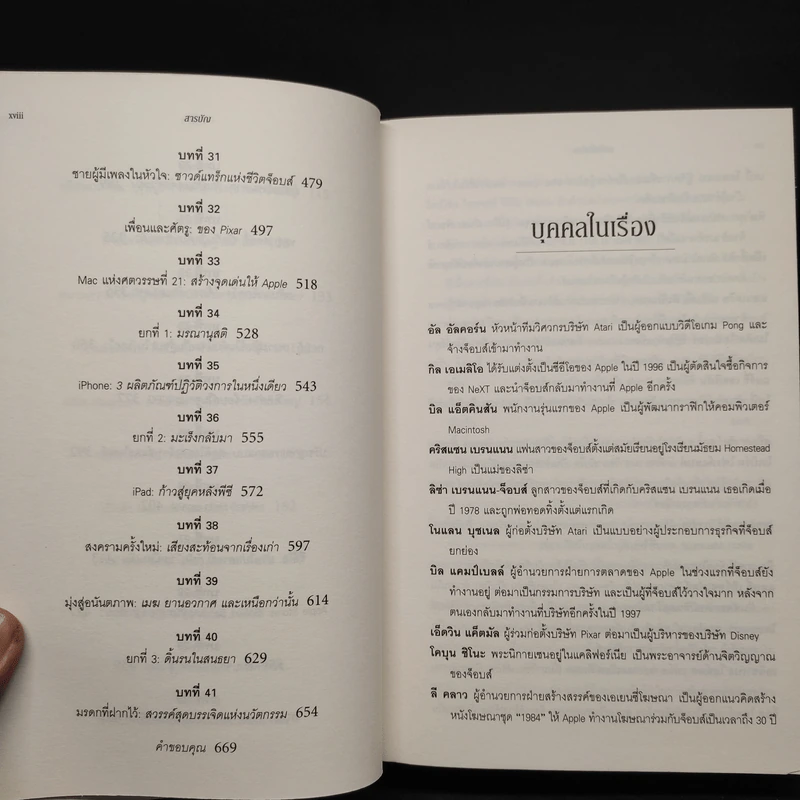 xviii
สารบัญ
บทที่ 31
ชายผู้มีเพลงในหัวใจ: ซาวด์แทร็กแห่งชีวิตจ็อบส์ 479
บทที่ 32
เพื่อนและศัตรู: ของ Pixar 497
บทที่ 33
Mac แห่งศตวรรษที่ 21: สร้างจุดเด่นให้ Apple 518
บทที่ 34
ยกที่ 1: มรณานุสติ 528
บทที่ 35
iPhone: 3 ผลิตภัณฑ์ปฏิวัติวงการในหนึ่งเดียว 543
บทที่ 36
ยกที่ 2: มะเร็งกลับมา 555
บทที่ 37
iPad: ก้าวสู่ยุคหลังพีซี 572
บทที่ 38
สงครามครั้งใหม่: เสียงสะท้อนจากเรื่องเก่า 597
บทที่ 39
มุ่งสู่อนันตภาพ: เมฆ ยานอวกาศ และเหนือกว่านั้น 614
บทที่ 40
ยกที่ 3: ดิ้นรนในสนธยา 629
บทที่ 41
มรดกที่ฝากไว้: สวรรค์สุดบรรเจิดแห่งนวัตกรรม 654
คำขอบคุณ 669
บุคคลในเรื่อง
อัล อัลคอร์น หัวหน้าทีมวิศวกรบริษัท Atari เป็นผู้ออกแบบวิดีโอเกม Pong และ
จ้างจ็อบส์เข้ามาทำงาน
กิล เอเมลิโอ ได้รับแต่งตั้งเป็นซีอีโอของ Apple ในปี 1996 เป็นผู้ตัดสินใจซื้อกิจการ
ของ NeXT และนำจ็อบส์กลับมาทำงานที่ Apple อีกครั้ง
บิล แอ็ตคินสัน พนักงานรุ่นแรกของ Apple เป็นผู้พัฒนากราฟิกให้คอมพิวเตอร์
Macintosh
คริสแซน เบรนแนน แฟนสาวของจ็อบส์ตั้งแต่สมัยเรียนอยู่โรงเรียนมัธยม Homestead
High เป็นแม่ของลิซ่า
ลิซ่า เบรนแนน-จ็อบส์ ลูกสาวของจ็อบส์ที่เกิดกับคริสแซน เบรนแนน เธอเกิดเมื่อ
ปี 1978 และถูกพ่อทอดทิ้งตั้งแต่แรกเกิด
โนแลน บุชเนล ผู้ก่อตั้งบริษัท Atari เป็นแบบอย่างผู้ประกอบการธุรกิจที่จ็อบส์
ยกย่อง
บิล แคมป์เบลล์ ผู้อำนวยการฝ่ายการตลาดของ Apple ในช่วงแรกที่จ็อบส์ยัง
ทำงานอยู่ ต่อมาเป็นกรรมการบริษัท และเป็นผู้ที่จ็อบส์ไว้วางใจมาก หลังจาก
ตนเองกลับมาทำงานที่บริษัทอีกครั้งในปี 1997
เอ็ดวิน แค็ตมัล ผู้ร่วมก่อตั้งบริษัท Pixar ต่อมาเป็นผู้บริหารของบริษัท Disney
โคบุน ชิโนะ พระนิกายเซนอยู่ในแคลิฟอร์เนีย เป็นพระอาจารย์ด้านจิตวิญญาณ
ของจ็อบส์
ลี คลาว ผู้อำนวยการฝ่ายสร้างสรรค์ของเอเยนซี่โฆษณา เป็นผู้ออกแนวคิดสร้าง
หนังโฆษณาชุด "1984" ให้ Apple ทำงานโฆษณาร่วมกับจ็อบส์เป็นเวลาถึง 30 ปี